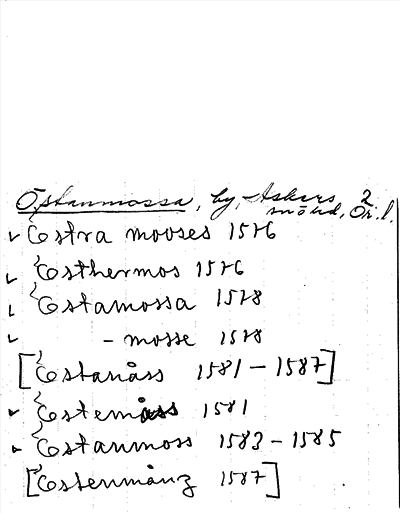 Östanmossa, by, Askers
snöud, Ör. l. 2
Estra mooses 1576
Esthermos 1576
Estamossa 1578
- mosse 1578
[Estanåss 1581-1587]
Estemåss 1581
Estanmoss 1583-1585
[Estenmånz 1587]